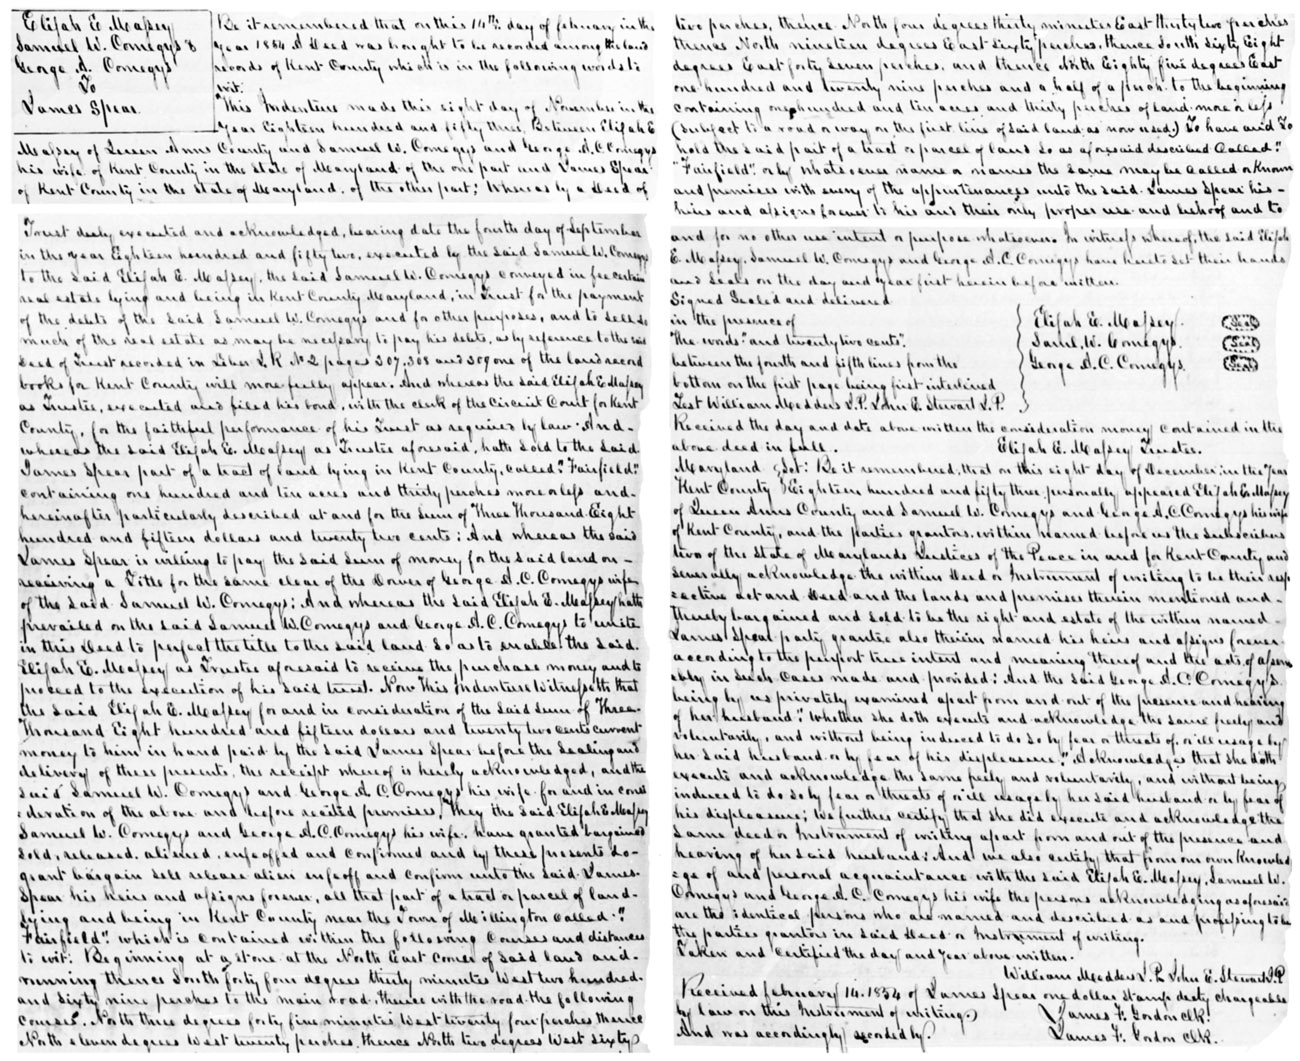 Elijah E. Massey
Samuel W. Comegys &
George A. Comegys
To
James Spear
Be it remembered that on this 14th day of february in the
year 1854 A Deed was brought to be recorded among the land
records of Kent County which is in the following words to
wit:
"This Indenture made this eight day of November in the
year Eighteen hundred and fifty three, Between Elijah E
Massey of Queen Anns County and Samuel W. Comegys and George A. C. Comegys
his wife of Kent County in the State of Maryland of the one part and James Spear
of Kent County in the State of Maryland, of the other part; Whereas by a Deed of
Trust duly executed and acknowledged, bearing date the fourth day of September
in the year Eighteen hundred and fifty two, executed by the said Samuel W. Comegys
to the said Elijah E. Massey, the said Samuel W. Comegys conveyed in fee certain
real estate lying and being in Kent County Maryland, in Trust for the payment
of the debts of the said Samuel W. Comegys and for other purposes, and to sell so
much of the real estate as may be necessary to pay his debts, as by reference to the said
deed of Trust recorded in Liber J.R. No 2 pages 307, 308 and 309 one of the land record
books for Kent County will more fully appear. And whereas the said Elijah E. Massey
as Trustee, executed and filed his bond, with the clerk of the Circuit Court for Kent
County, for the faithful performance of his Trust as required by law. And
whereas the said Elijah E. Massey as Trustee aforesaid, hath sold to the said
James Spear part of a tract of land lying in Kent County, called "Fairfield"
containing one hundred and ten acres and thirty perches more or less and
hereinafter particularly described at and for the sum of Three Thousand Eight
hundred and fifteen dollars and twenty two cents; And whereas the said
James Spear is willing to pay the said sum of money for the said land on
receiving a Title for the same clear of the Dower of George A. C. Comegys wife
of the said Samuel W. Comegys; And whereas the said Elijah E. Massey hath
prevailed on the said Samuel W. Comegys and George A. C. Comegys to unite
in this Deed to perfect the title to the said land so as to enable the said
Elijah E. Massey as Trustee aforesaid to receive the purchase money and to
proceed to the execution of his said trust. Now This Indenture Witnesseth that
the said Elijah E. Massey for and in consideration of the said sum of Three
Thousand Eight hundred and fifteen dollars and twenty two cents current
money to him in hand paid by the said James Spear before the sealing and
delivery of these presents, the receipt whereof is hereby acknowledged, and the
said Samuel W. Comegys and George A. C. Comegys his wife for and in consi
deration of the above and before recited premises, They the said Elijah E. Massey
Samuel W. Comegys and George A. C. Comegys his wife have granted bargained
sold, released, aliened, enfeoffed and confirmed and by these presents do
grant bargain sell release alien enfeoff and confirm unto the said James
Spear his heirs and assigns forever, all that part of a tract or parcel of land
lying and being in Kent County near the Town of Millington called "
Fairfield" which is contained within the following courses and distances
to wit: Beginning at a stone at the North East corner of said land and
running thence South forty four degrees thirty minutes West two hundred
and sixty nine perches to the main road, thence with the road the following
courses. North three degrees forty five minutes West twenty four perches thence
North eleven degrees West twenty perches, thence North two degrees West sixty
two perches, thence North four degrees thirty minutes East thirty two perches
thence North nineteen degrees East sixty perches, thence South Sixty Eight
degrees East forty seven perches, and thence North Eighty five degrees East
one hundred and twenty nine perches and a half of a perch to the beginning
containing one hundred and ten acres and thirty perches of land more or less
(subject to a road or way on the first line of said land as now used.) To have and To
hold the said part of a tract or parcel of land so as aforesaid described Called
"Fairfield" or by whatsoever name or names the same may be called or Known
and premises with every of the appurtenances unto the said James Spear his
heirs and assigns forever to his and their only proper use and behoof and to
and for no other use intent or purpose whatsoever. In witness whereof, the said Elijah
E. Massey, Samuel W. Comegys and George A. C. Comegys have hereto set their hands
and seals on the day and year first herein before written.
Signed Sealed and delivered
in the presence of
"the words" and twenty two cents"
between the fourth and fifth lines from the
bottom on the first page being first interlined
Test William Medders J.P. John E. Stewart J.P.
Elijah E. Massey. Seal
Saml. W. Comegys Seal
George A. C. Comegys. Seal
Received the day and date above written the consideration money contained in the
above deed in full. Elijah E. Massey Trustee.
Maryland Sct: Be it remembered, that on this eight day of December in the Year
Kent County Eighteen hundred and fifty three personally appeared Elijah E. Massey
of Queen Anns County and Samuel W. Comegys and George A. C. Comegys his wife
of Kent County, and the parties grantors, within named before us the Subscribers
two of the State of Marylands Justices of the Peace in and for Kent County, and
severally acknowledge the within Deed or Instrument of writing to be their resp
ective act and Deed and the lands and premises therein mentioned and
thereby bargained and sold to be the right and estate of the within named
James Spear party grantee also therein named his heirs and assigns forever
according to the purport true intent and meaning thereof and the acts of assem
bly in such Cases made and provided; And the said George A. C. Comegys
being by us privately examined apart from and out of the presence and hearing
of her husband "Whether she doth execute and acknowledge the same freely and
voluntarily, and without being induced to do so by fear or threats of, or ill usage by
her said husband or by fear of his displeasure." Acknowledges that she doth
execute and acknowledge the same freely and voluntarily, and without being
induced to do so by fear or threats of or ill usage by her said husband or by fear of
his displeasure; We further certify that she did execute and acknowledge the
same deed or Instrument of writing apart from and out of the presence and
hearing of her said husband; And we also certify that from our own Knowled
ge of and personal acquaintance with the said Elijah E. Massey, Samuel W.
Comegys and George A. C. Comegys his wife the persons acknowledging as aforesaid
are the identical persons who are named and described as and professing to be
the parties grantors in said Deed or Instrument of writing.
Taken and certified the day and Year above written.
William Medders J.P. John E. Stewart J.P.
Received february 14. 1854 of James Spear one dollar Stamp duty chargeable
by law on this Instrument of writing James F. Gordon Clk.
And was accordingly recorded by James F. Gordon Clk.